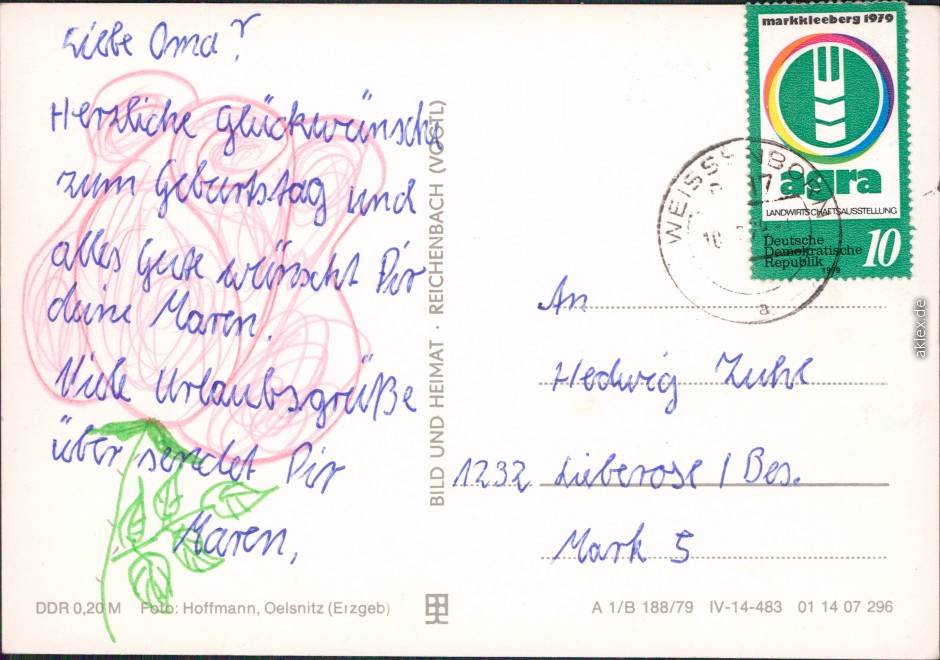 Liebe Oma?
Herzliche Glückwünsche
zum Geburtstag und
alles Gute wünscht Dir
deine Maren.
Viele Urlaubsgrüße
über sendet Dir
Maren,
DDR 0,20 M Foto: Hoffmann, Oelsnitz (Erzgeb)
BILD UND HEIMAT · REICHENBACH (VOGTL)
markkleeberg 1979
agra
LANDWIRTSCHAFTSAUSSTELLUNG
Deutsche
Demokratische
Republik
10
1979
WEISSENBORN
a
An
Hedwig Zuhl
1232 Lieberose / Bes.
Mark 5
A 1/B 188/79 IV-14-483 01 14 07 296
aklex.de